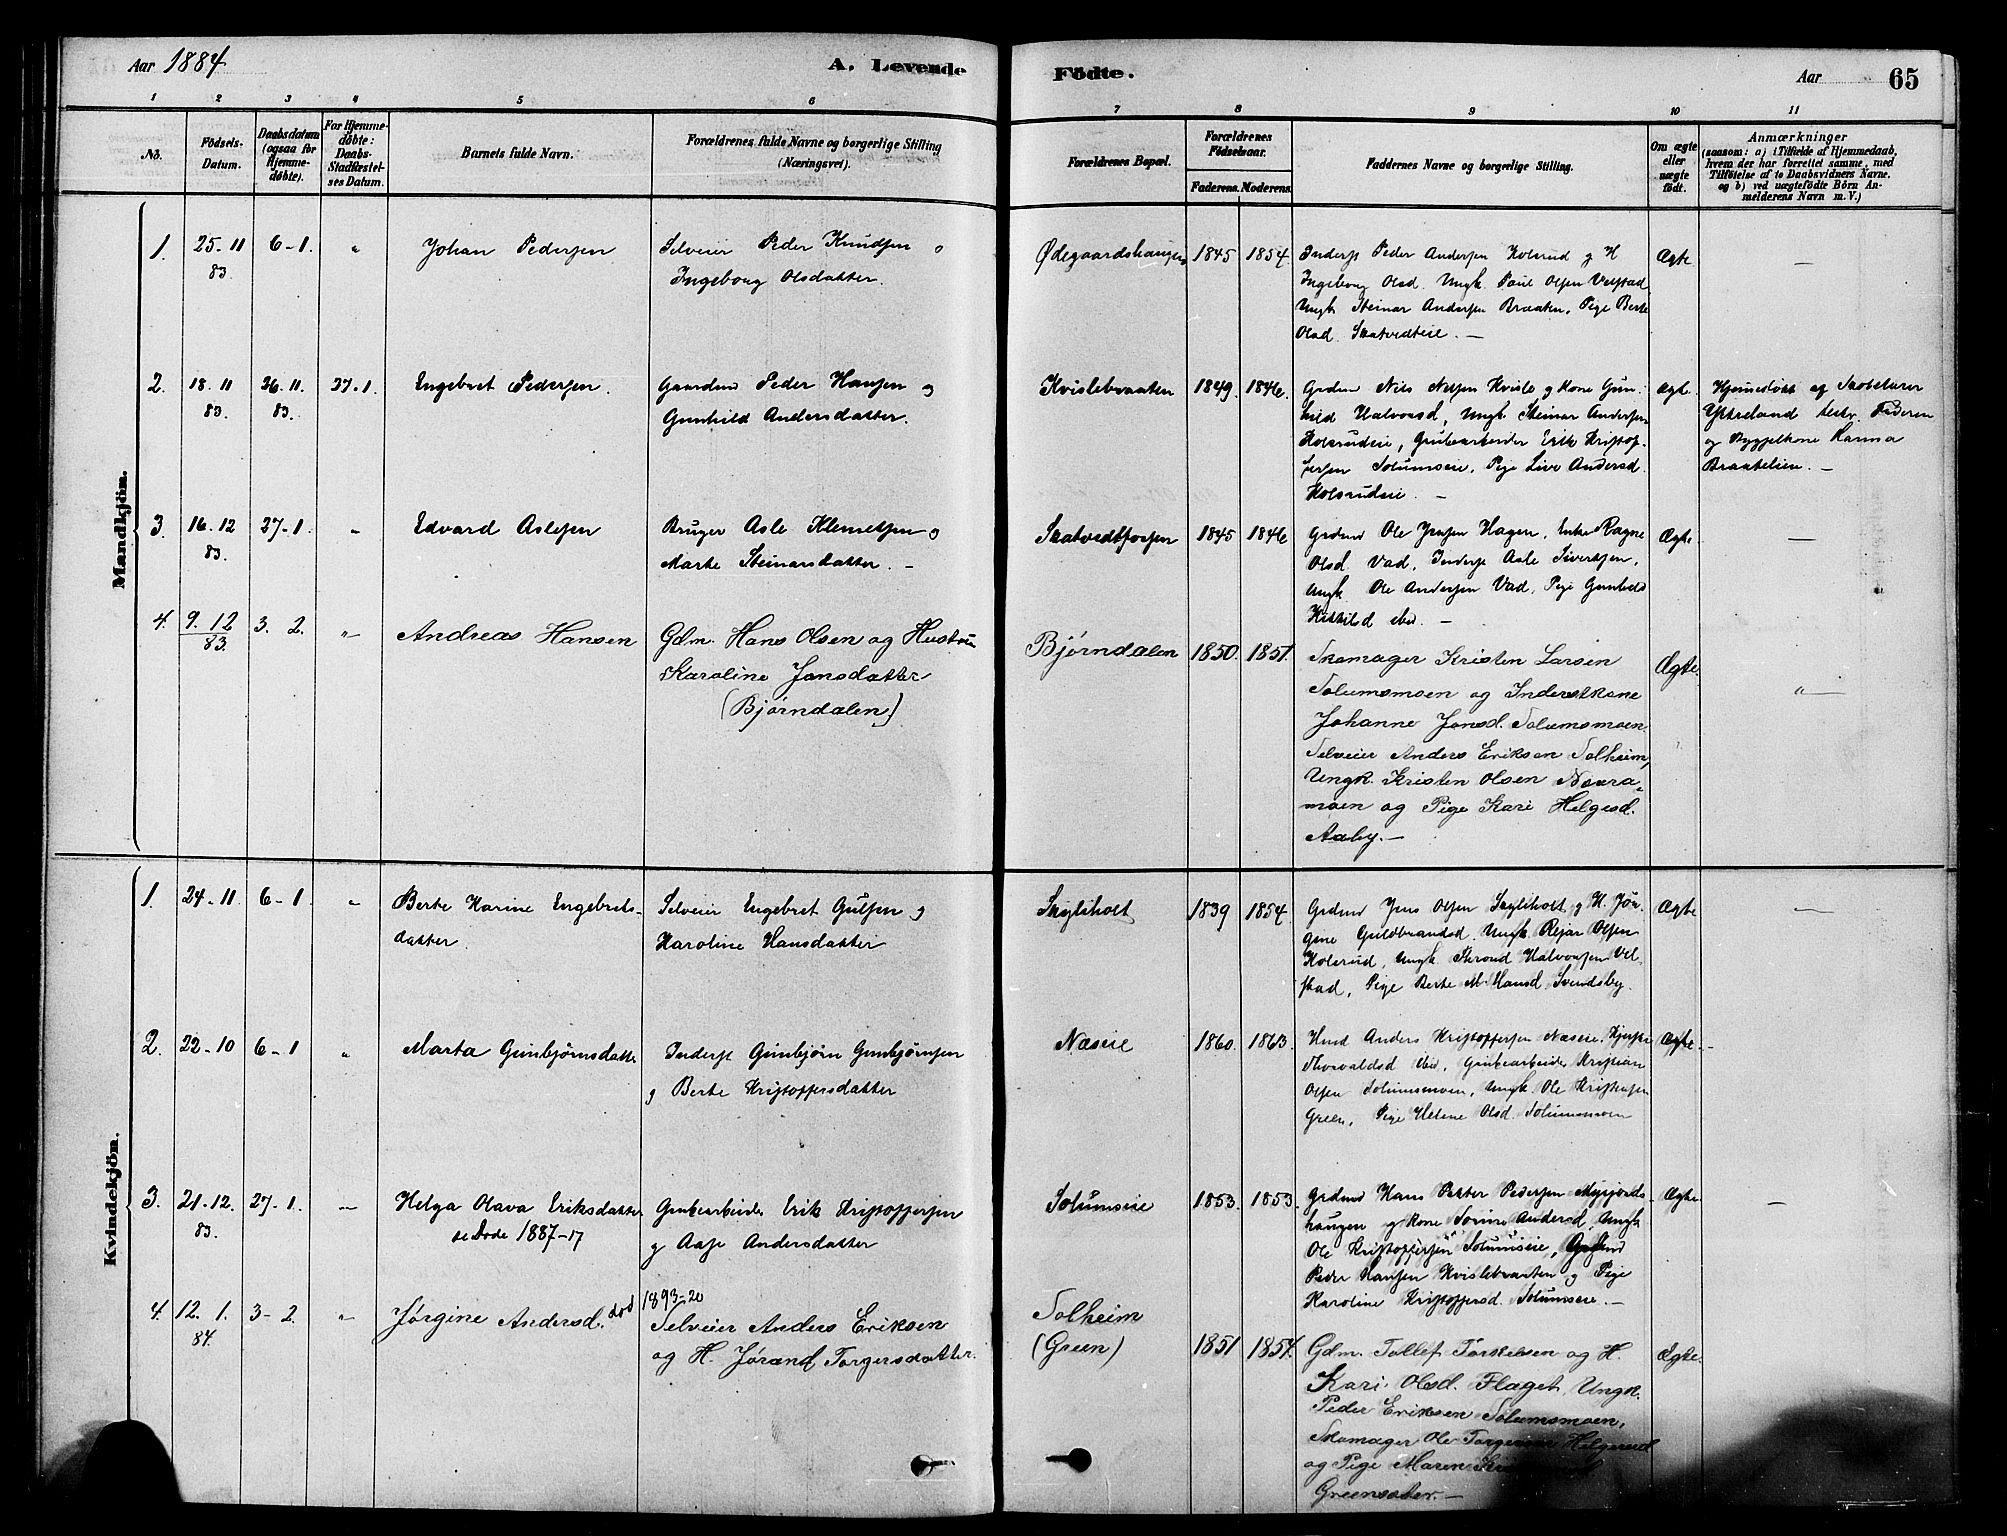 Aar 1884
A. Levende Födte.
Aar 65
1 2 3 4 5 6 7 8 9 10 11
No.
Födsels-
Datum.
Daabsdatum
(ogsaa for
Hjemme-
döbte).
For Hjemme-
döbte:
Daabs-
Stadfæstel-
ses Datum.
Barnets fulde Navn.
Forældrenes fulde Navne og borgerlige Stilling
(Næringsvei).
Forældrenes Bopæl.
Forældrenes
Födselsaar.
Faderens. Moderens.
Faddernes Navne og borgerlige Stilling.
Om ægte
eller
uægte
födt.
Anmærkninger
(saasom: a) i Tilfælde af Hjemmedaab,
hvem der har forrettet samme, med
Tilföielse af to Daabsvidners Navne.
og b) ved uægtefödte Börn An-
melderens Navn m. V.)
Mandkjön.
1. 25-11
83
6-1.
"
Johan Pedersen
Selveier Peder Knudsen o
Ingeborg Olsdatter.
Ødegaardshaugen
1845 1854.
Inderst Peder Andersen Kolsrud g H
Ingeborg Olsd. Ungk. Paul Olsen Velstad
Ungk Steinar Andersen Braaten, Pige Berte
Olsd. Skatvedteie. —
Ægte
—
2. 18.11
83
26.11.
83.
27-1.
Engebret Pedersen.
Gaardm Peder Hansen g
Gunhild Andersdatter.
Kvislebraaten
1849. 1846.
Grdmd Nils Nilsen Kvisle g kone Gun-
hild Halvorsd, Ungk. Steinar Andersen
Kolsrudeie, Grubearbeider Erik Kristof-
fersen Solumseie, Pige Live Andersd.
Kolsrudeie. —
Ægte.
Hjemmedøbt og Skoleturer
Ytreland testr. Faderen
og Byggelkone Karina
Braatelien. —
3. 16.12
83.
27-1.
"
Edvard Aslesen
Bruger Asle Klemetsen g
Marte Steinarsdatter. —
Skatvedtfossen
1845 1846
Grdmd Ole Jensen Hagen, Enke Ragne
Olsd. Vad, Inderst Asle Sivertsen,
Ungk Ole Andersen Vad, Pige Gunhild
Kittild ibid. —
Ægte
—
4. 9.12
83.
3.2.
"
Andreas Hansen
Gdm. Hans Olsen og Hustru
Karoline Jonsdatter
(Bjørndalen)
Bjørndalen
1850. 1851.
Skomager Kristen Larsen
Solumsmoen og Inderstkone
Johanne Jonsd. Solumsmoen
Selveier Anders Eriksen Solheim,
Ungk. Kristen Olsen Nora-
moen og Pige Kari Helgesd.
Aaby. —
Ægte.
"—
Kvindekjön.
1. 24-11.
6-1.
"
Berte Karine Engebrets-
datter.
Selveier Engebret Gulsen g
Karoline Hansdatter
Skyliholt
1839 1854.
Grdmd Jens Olsen Skyliholt g H. Jør-
gine Guldbrandsd. Ungk. Rejar Olsen
Kolsrud, Ungk Trond Halvorsen Vel-
stad, Pige Berte M. Hansd. Svendsby.
Ægte
—
2. 22-10
6-1
"
Marta Gunbjørnsdatter
Inderst Gunbjørn Gunbjørnsen
g Berte Kristoffersdatter
Næseie
1860. 1863.
Hmd Anders Kristoffersen Næseie, Kjersti
Thorvaldsd ibid, Grubearbeider Kristian
Olsen Solumsmoen, Ungk. Ole Kristiansen
Green, Pige Helene Olsd. Solumsmoen
Ægte. —
3. 21.12.
83.
27-1.
"
Helga Olava Eriksdatter
se Døde 1887-17
Grubearbeider Erik Kristoffersen
g Aase Andersdatter
Solumseie
1853. 1853.
Grdmd Hans Petter Pedersen Mysjords-
haugen g kone Sorine Andersd, Ungk
Ole Kristoffersen Solumseie, Grdmd
Peder Hansen Kvislebraaten g Pige
Karoline Kristoffersd. Solumseie. —
Ægte
—
4. 12.1.
84.
3-2.
"
Jørgine Andersd. død 1893-20
Selveier Anders Eriksen
og H. Jørand Torgersdatter.
Solheim
(Green)
1851 1854.
Gdm. Tollef Torkelsen og H.
Kari Olsd. Flaget, Ungk.
Peder Eriksen Solumsmoen,
Skomager Ole Torgersen Helgerud
og Pige Maren
Greensæter. —
Ægte.